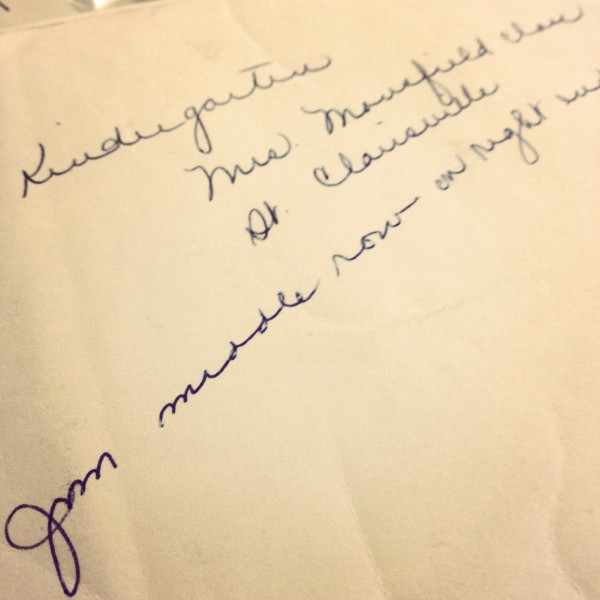 Kindergarten
Mrs. Mansfield class
St. Clairsville
Jim middle row on right